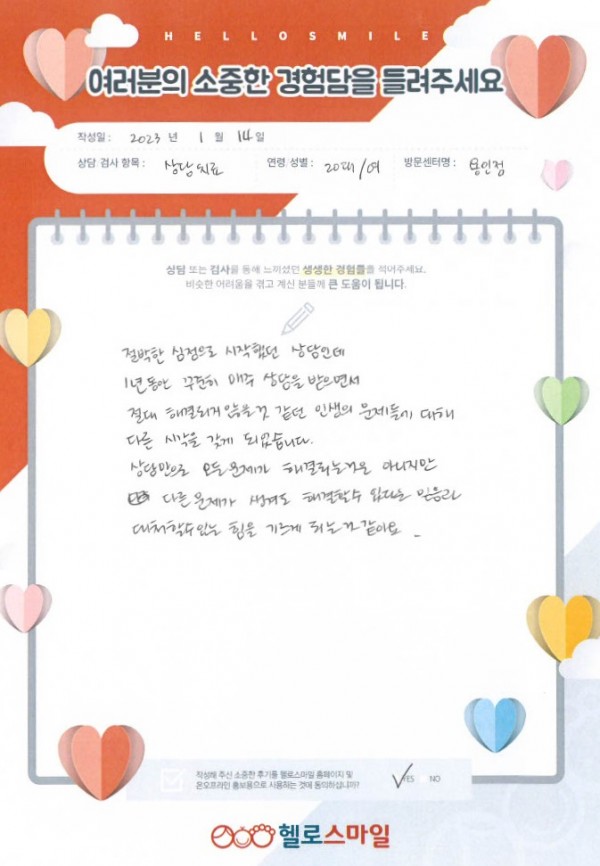 HELLOSMILE
여러분의 소중한 경험담을 들려주세요
작성일 : 2023 년 1 월 14 일
상담 검사 항목 : 상담치료 연령 성별 : 20대/여 방문센터명 : 용인점
상담 또는 검사를 통해 느끼셨던 생생한 경험들을 적어주세요.
비슷한 어려움을 겪고 계신 분들께 큰 도움이 됩니다.
절박한 심정으로 시작했던 상담인데
1년동안 꾸준히 매주 상담을 받으면서
절대 해결되지 않을것 같던 인생의 문제들에 대해
다른 시각을 갖게 되었습니다.
상담만으로 모든문제가 해결되는것은 아니지만
다른문제가 생겨도 해결할수 있다는 믿음과
대처할수있는 힘을 기르게 되는것 같아요
작성해 주신 소중한 후기를 헬로스마일 홈페이지 및
온오프라인 홍보용으로 사용하는 것에 동의하십니까? YES NO
헬로스마일